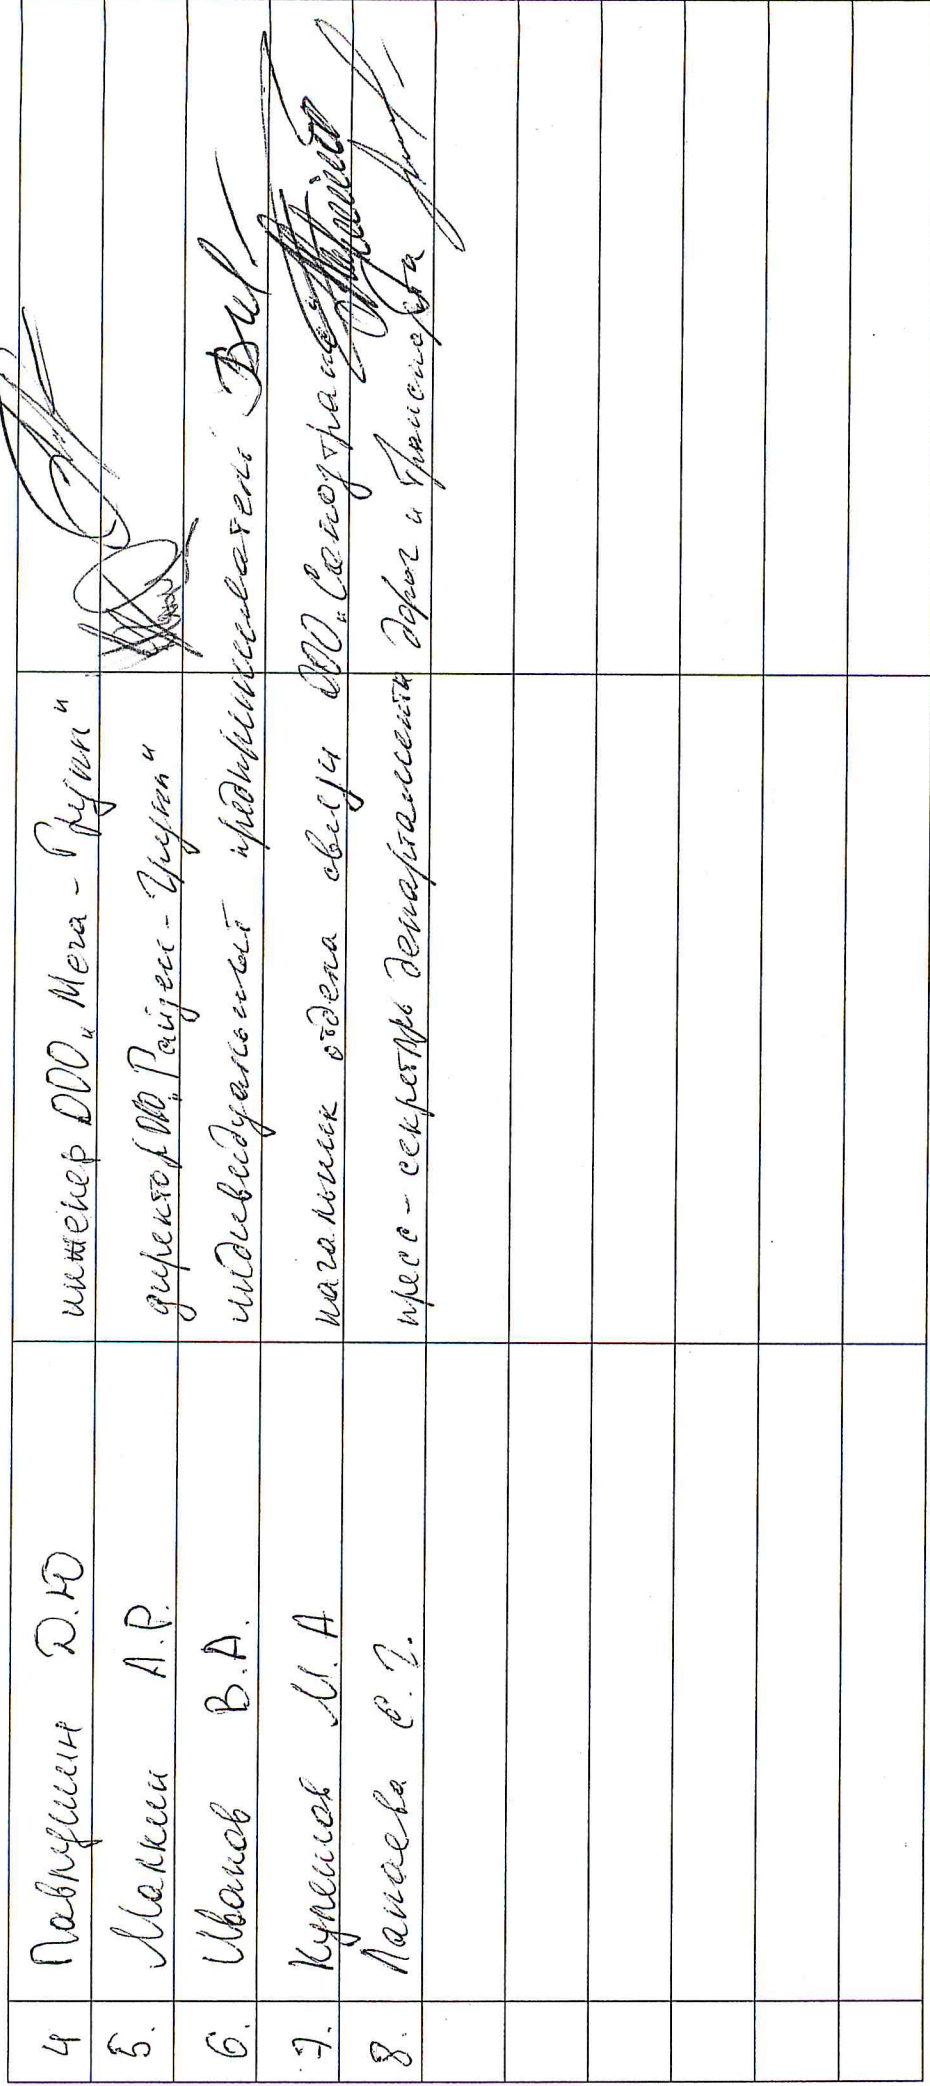 4 Паврушин Д.Ю инженер ООО „Мега - Групп"
5. Малкин А.Р. директор ООО „Гайдес - Групп"
6. Иванов В.А. индивидуальный предприниматель
7. Кулешов М.А начальник отдела связи ООО „Самортранс"
8. Лапаева С.Г. пресс - секретарь департамента дорог и транспорта